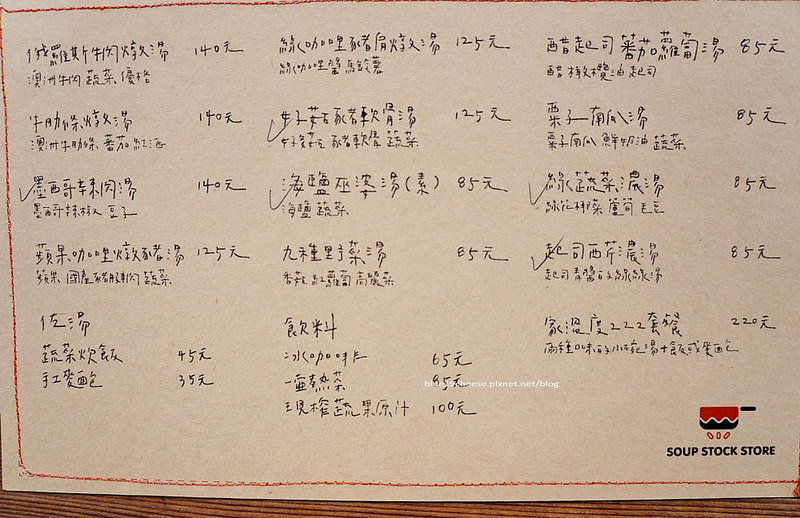 俄羅斯牛肉燉湯 140元
澳洲牛肉 蔬菜 優格
牛肋條燉湯 140元
澳洲牛肋條 蕃茄 紅酒
墨西哥辣肉湯 140元
墨西哥辣椒 豆子
蘋果咖哩燉豬湯 125元
蘋果 國產豬腱肉 蔬菜
佐湯
蔬菜炊飯 45元
手工麵包 35元
綠咖哩豬肩燉湯 125元
綠咖哩醬 馬鈴薯
牛蒡豬軟骨湯 125元
豬軟骨 蔬菜
海鹽巫婆湯(素) 85元
海鹽 蔬菜
九種野菜湯 85元
香菇 紅蘿蔔 高麗菜
飲料
冰咖啡 65元
一壺熱茶 85元
現榨蔬果原汁 100元
醋起司蕃茄蘿蔔湯 85元
醋 橄欖油 起司
栗子南瓜湯 85元
栗子南瓜 鮮奶油 蔬菜
綠蔬菜濃湯 85元
綠花椰菜 蘆筍 毛豆
起司西芹濃湯 85元
起司 青醬
家溫度222套餐 220元
兩種口味的小碗湯+飯或麵包
SOUP STOCK STORE